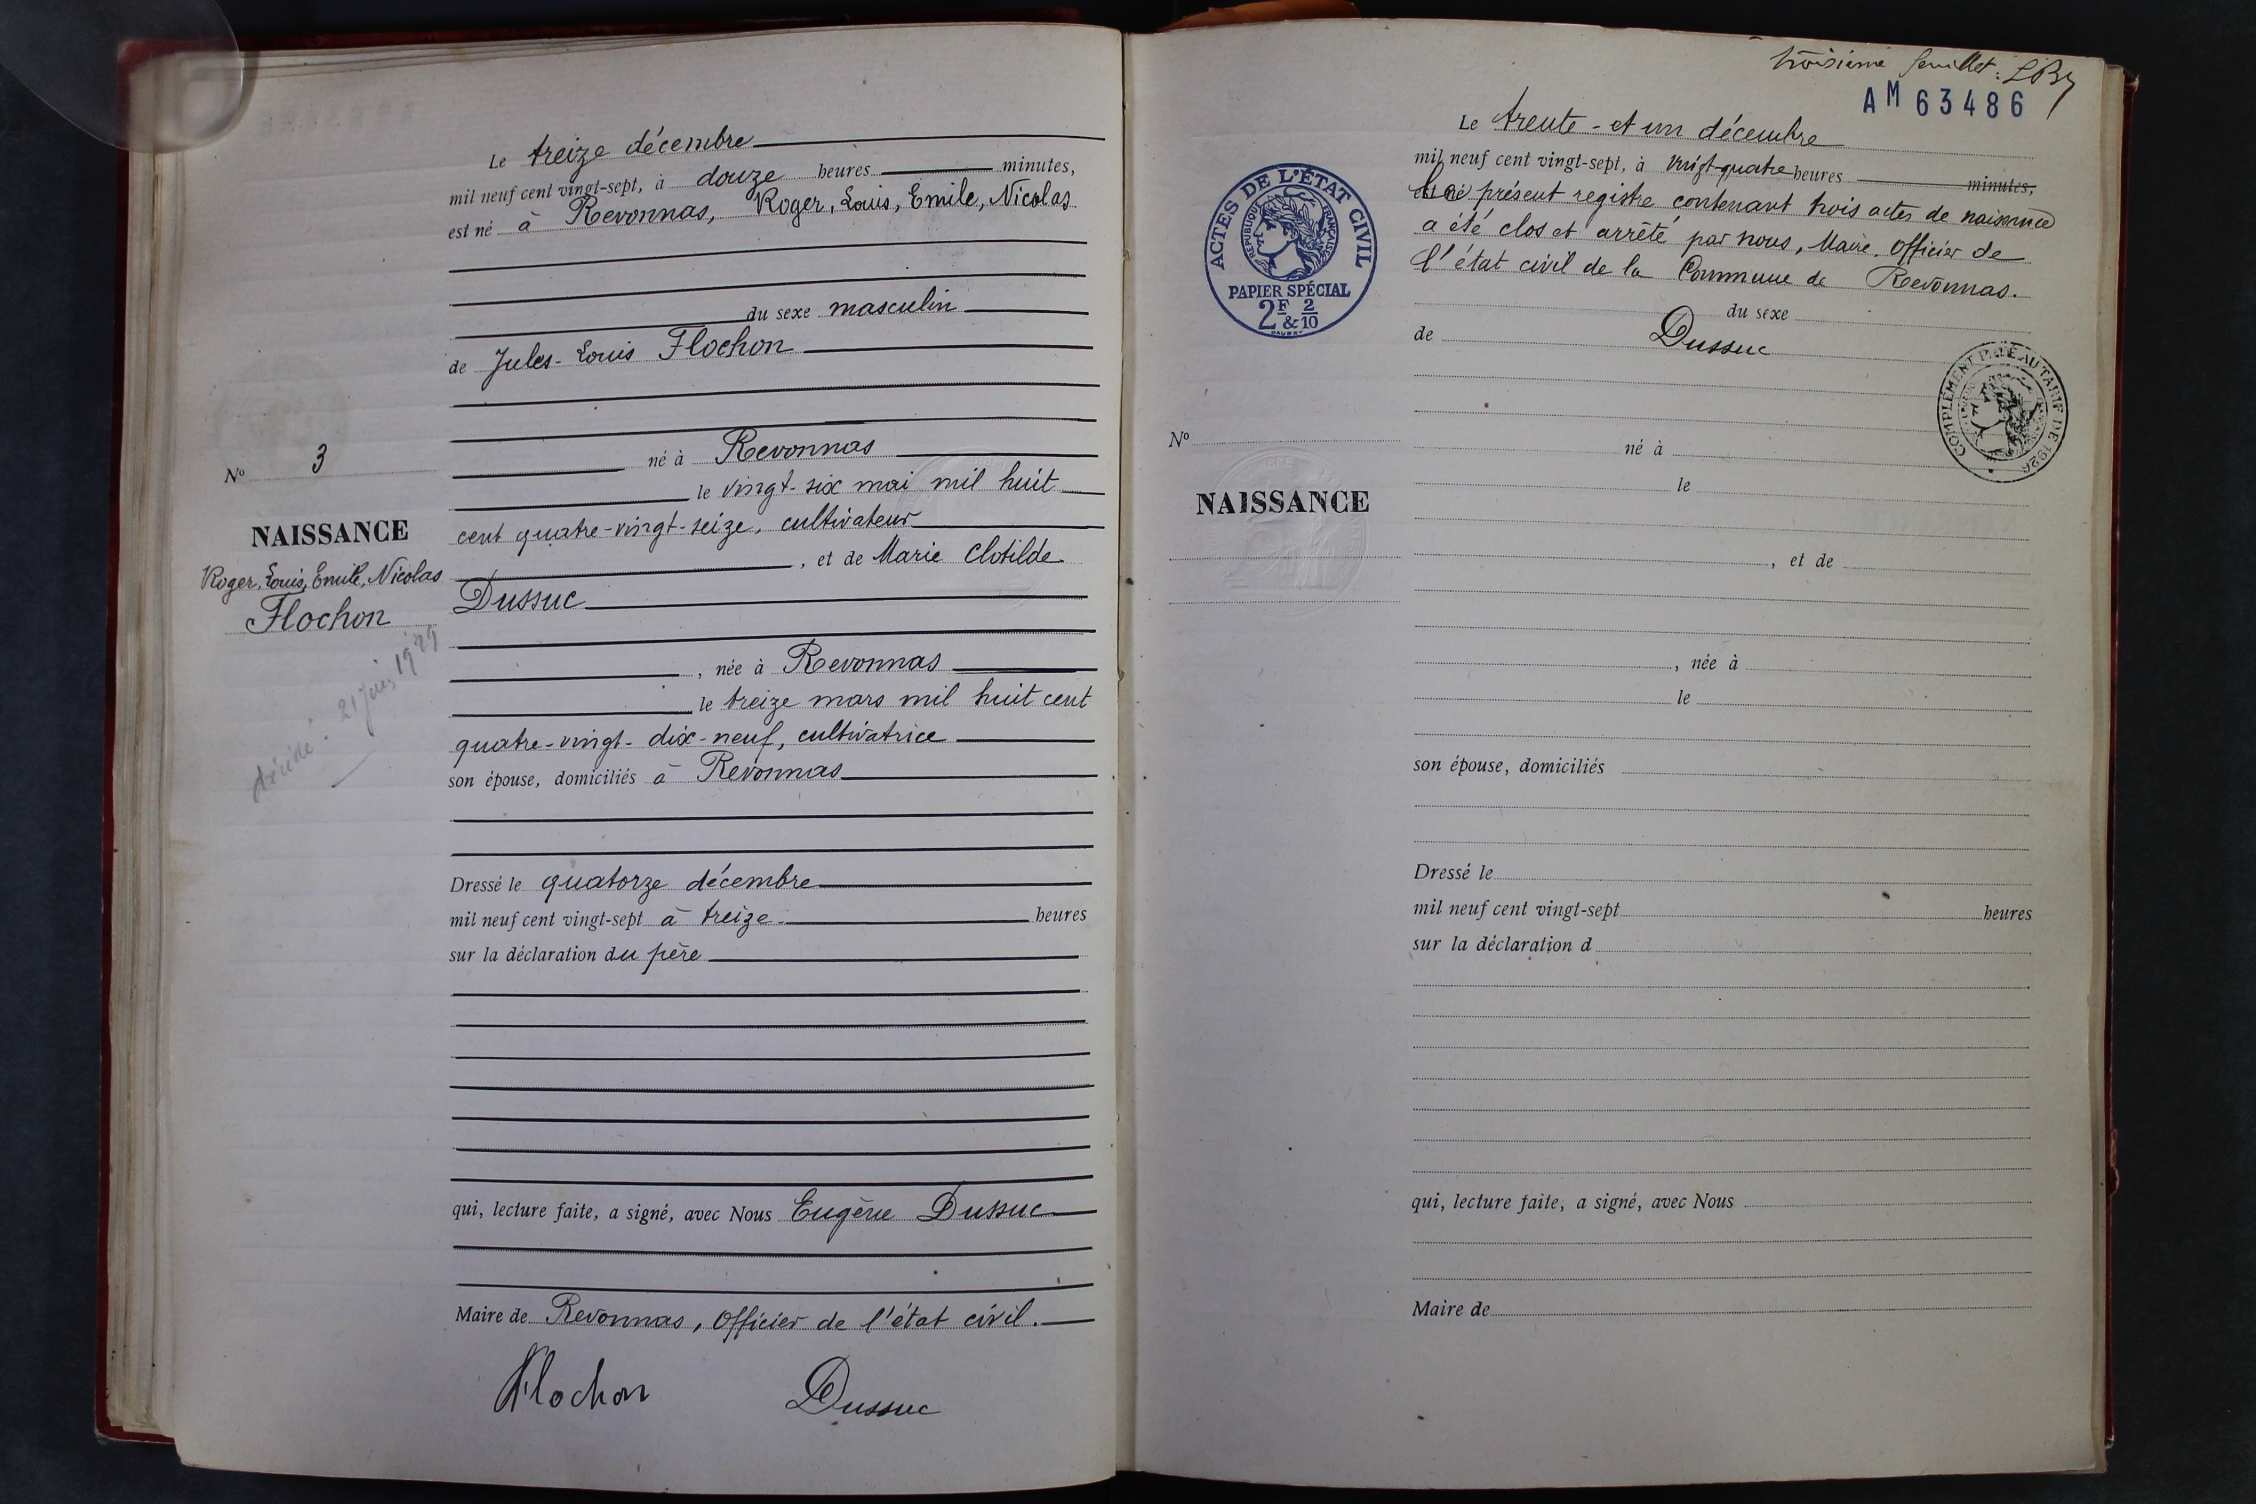 Le treize décembre
mil neuf cent vingt-sept, à douze heures minutes,
est né à Revonnas, Roger, Louis, Emile, Nicolas
du sexe masculin
de Jules-Louis Flochon
né à Revonnas
le vingt-six mai mil huit
cent quatre-vingt-seize, cultivateur
, et de Marie Clotilde
Dussuc
, née à Revonnas
le treize mars mil huit cent
quatre-vingt-dix-neuf, cultivatrice
son épouse, domiciliés à Revonnas
Dressé le quatorze décembre
mil neuf cent vingt-sept à treize heures
sur la déclaration du père
qui, lecture faite, a signé, avec Nous Eugène Dussuc
Maire de Revonnas, Officier de l'état civil.
Flochon Dussuc
No 3
NAISSANCE
Roger, Louis, Emile, Nicolas
Flochon
21 1929
troisième feuillet :
AM 63486
Le trente-et un décembre
mil neuf cent vingt-sept, à vingt-quatre heures minutes,
présent registre contenant trois actes de naissance
a été clos et arrêté par nous, Maire, Officier de
l'état civil de la Commune de Revonnas.
du sexe
de Dussuc
né à
le
, et de
, née à
le
son épouse, domiciliés
Dressé le
mil neuf cent vingt-sept heures
sur la déclaration d
qui, lecture faite, a signé, avec Nous
Maire de
ACTES DE L'ÉTAT CIVIL
RÉPUBLIQUE FRANÇAISE
PAPIER SPÉCIAL
2F & 2/10
COMPLÉMENT PAYÉ AU TARIF DE 1926
No
NAISSANCE